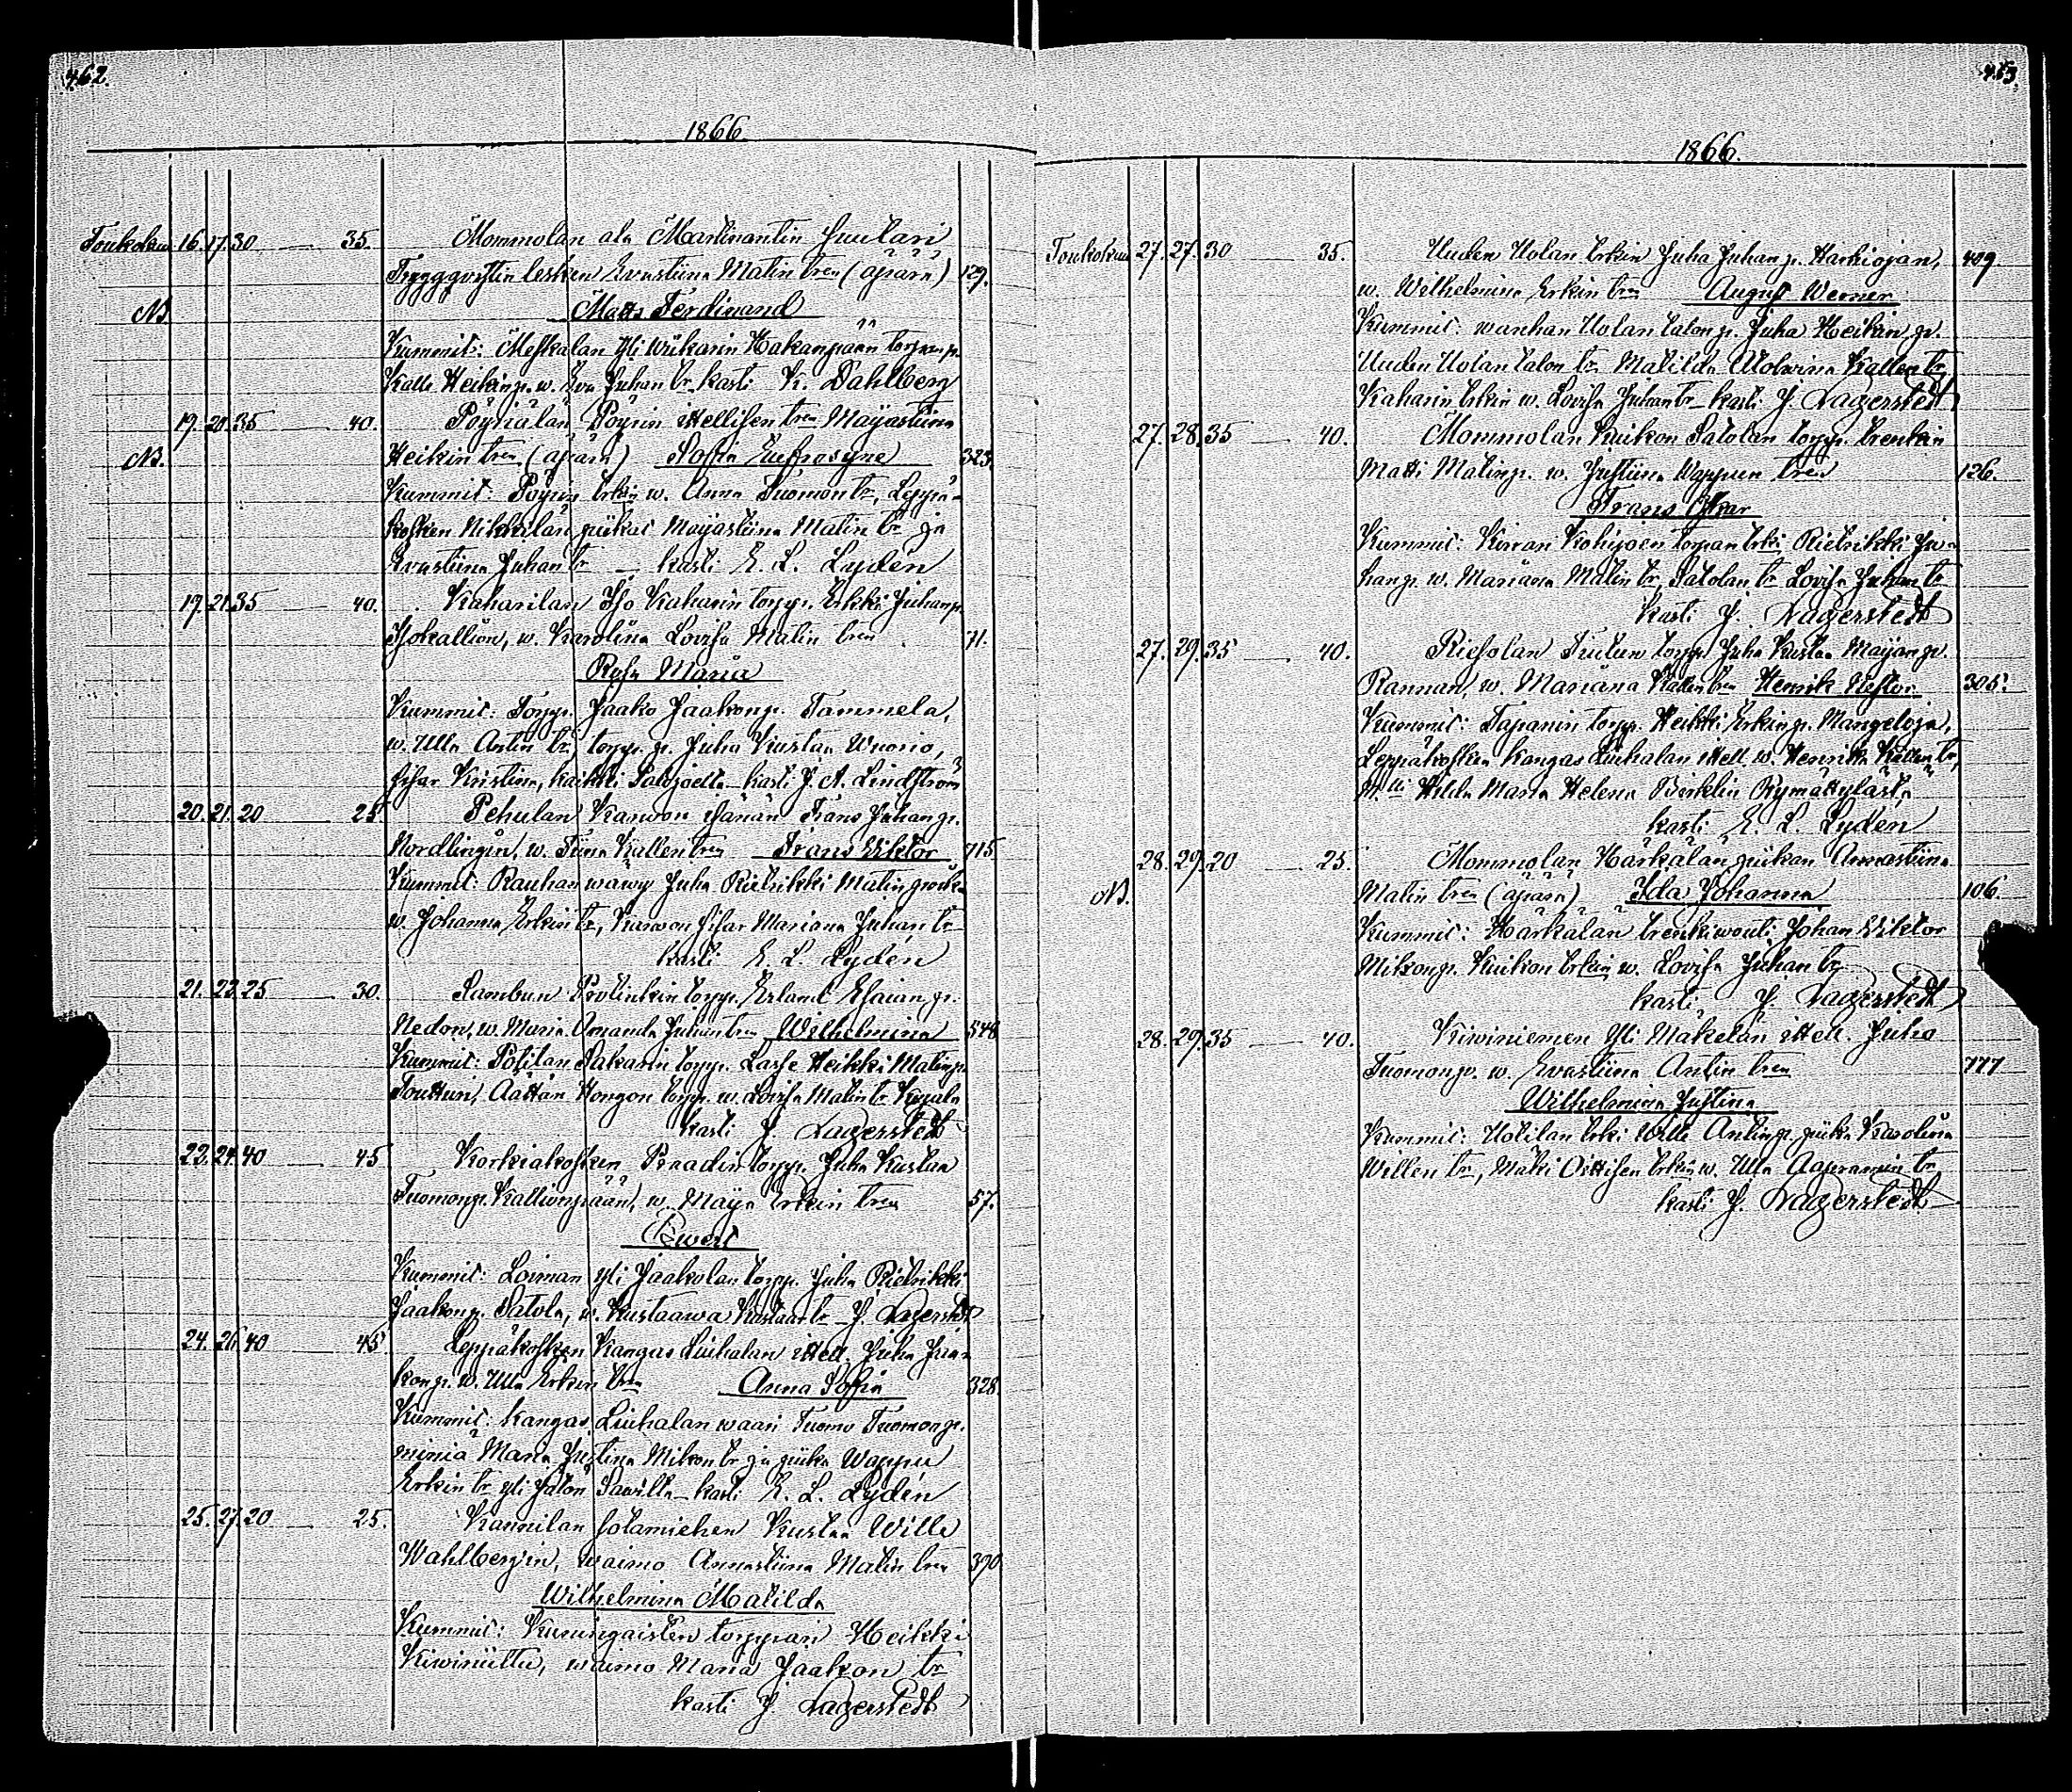 462.
1866
Toukokuu 16. 17. 30 35. Mommolan ala Martinantin Juulari
Tryggqvistin lesken Evastiina Matin tren (äpärä) 129.
NB Matts Ferdinand
Kummit: Meskalan yli wiikarin Hakanpään torpan p.
Kalle Heikinp. w. Eva Juhan tr. kasti K. Dahlberg
19. 20. 35 40. Pöyriälän Pöyrin ittellisen tren Maijastiina
NB. Heikin tren (äpärä) Sofia Eufrosyne 323.
Kummit: Pöyrin trkin w. Anna Tuomon tr, Leppä-
kosken Nikkilän piikat Maijastiina Matin tr ja
Evastiina Juhan tr — kasti E. L. Lydén
19. 21. 35 40. Kaharilan Iso Kaharin torpp. Erkki Juhanp.
Isokallion, w. Karolina Lovisa Matin tren 71.
Rosa Maria
Kummit: Torpp. Jaako Jaakonp. Tammela,
w. Ulla Antin tr, torpp. p. Juha Kustaa Wuorio,
sisar Kristiina, kaikki Salojoelta kasti J. A. Lindström
20. 21. 20 25 Pehulan Karwon isänän Frans Juhan p.
Nordlingin, w. Tiina Kallen tren Frans Wiktor 715
Kummit: Rauhan wäwy Juha Rietrikki Matinp
w. Johanna Erkin tr, Karwon sisar Mariana Juhan tr
kasti E. L. Lydén
21. 22. 25 30. Sambun Protinkin torpp. Erland Esaian p.
Nedon, w. Maria Amanda Juhan tren Wilhelmina 548
Kummit: Potilan Sakarin torpp. Lasse Heikki Matinp.
Toutturi, Äättän Hongon torpp. w. Lovisa Matin tr
kasti J. Lagerstedt
23. 24. 40 45 Korkiakosken Praadin torpp. Juha Kustaa
Tuomonp. Kallionpään, w. Maija Erkin tren 57.
Ewert
Kummit: Loiman yli Jaakolan torpp. Juha Rietrikki
Jaakonp. Satola, w. Kustaawa Kustaan tr J. Lagerstedt
24. 26. 40 45 Leppäkosken Kangas Liuhalan ittell. Juha Jaa-
konp. w. Ulla Erkin tren Anna Sofia 328.
Kummit: Kangas Liuhalan waari Tuomo Tuomonp.
miniä Maria Justina Mikon tr ja piika Wappu
Erkin tr yli Jalon Sawilla kasti E. L. Lydén
25. 27. 20 25. Kannilan sotamiehen Kustaa Wille
Wahlbergin, waimo Annastiina Matin tren 390
Wilhelmina Matilda
Kummit: Kuningaisten torpparin Heikki
Kiwiniittu, waimo Maria Jaakon tr
kasti J. Lagerstedt
463.
1866.
Toukokuu 27. 27. 30 35. Uuden Uolan trkin Juha Juhan p. Harkiojan, 409
w. Wilhelmina Erkin tren August Werner
Kummit: wanhan Uolan talon p. Juha Heikin p.
Uuden Uolan talon tr Matilda Kallen tr,
Kaharin trkin w. Lovisa Juhan tr kasti J. Lagerstedt
27. 28. 35 40. Mommolan Kuikon Satolan torpp. trenkin
Matti Matinp. w. Justiina Wappun tren 126.
Frans Oskar
Kummit: Korwan Kohijoen torpan trki Rietrikki Ju-
hanp. w. Mariana Matin tr, Satolan tr Lovisa Juhan tr
kasti J. Lagerstedt
27. 29. 35 40. Riesolan Tuiteen torpp. Juha Kustaa Maijan p.
Rannan, w. Mariana Kallen tren Henrik Nestor 305.
Kummit: Tapanin torpp. Heikki Erkinp. Mangeloja,
Leppäkosken Kangas Liuhalan ittell. w. Henrika Kallen tr,
Hilda Maria Helena Birklin Rymättylästä
kasti E. L. Lydén
28. 29. 20 25. Mommolan Härkälän piikan Annastiina
NB. Matin tren (äpärä) Ida Johanna 106.
Kummit: Härkälän trenkiwouti Johan Wiktor
Mikonp. Kuikon trkin w. Lovisa Juhan tr
kasti J. Lagerstedt
28. 29. 35 40. Kiwiniemen yli Mäkelän ittell. Juho
Tuomonp. w. Evastiina Antin tren 777
Wilhelmina Justina
Kummit: Uotilan trki Wille Antinp. piika Karoliina
Willen tr, Mäki Oittisen trkin w. Ulla Aapramin tr
kasti J. Lagerstedt